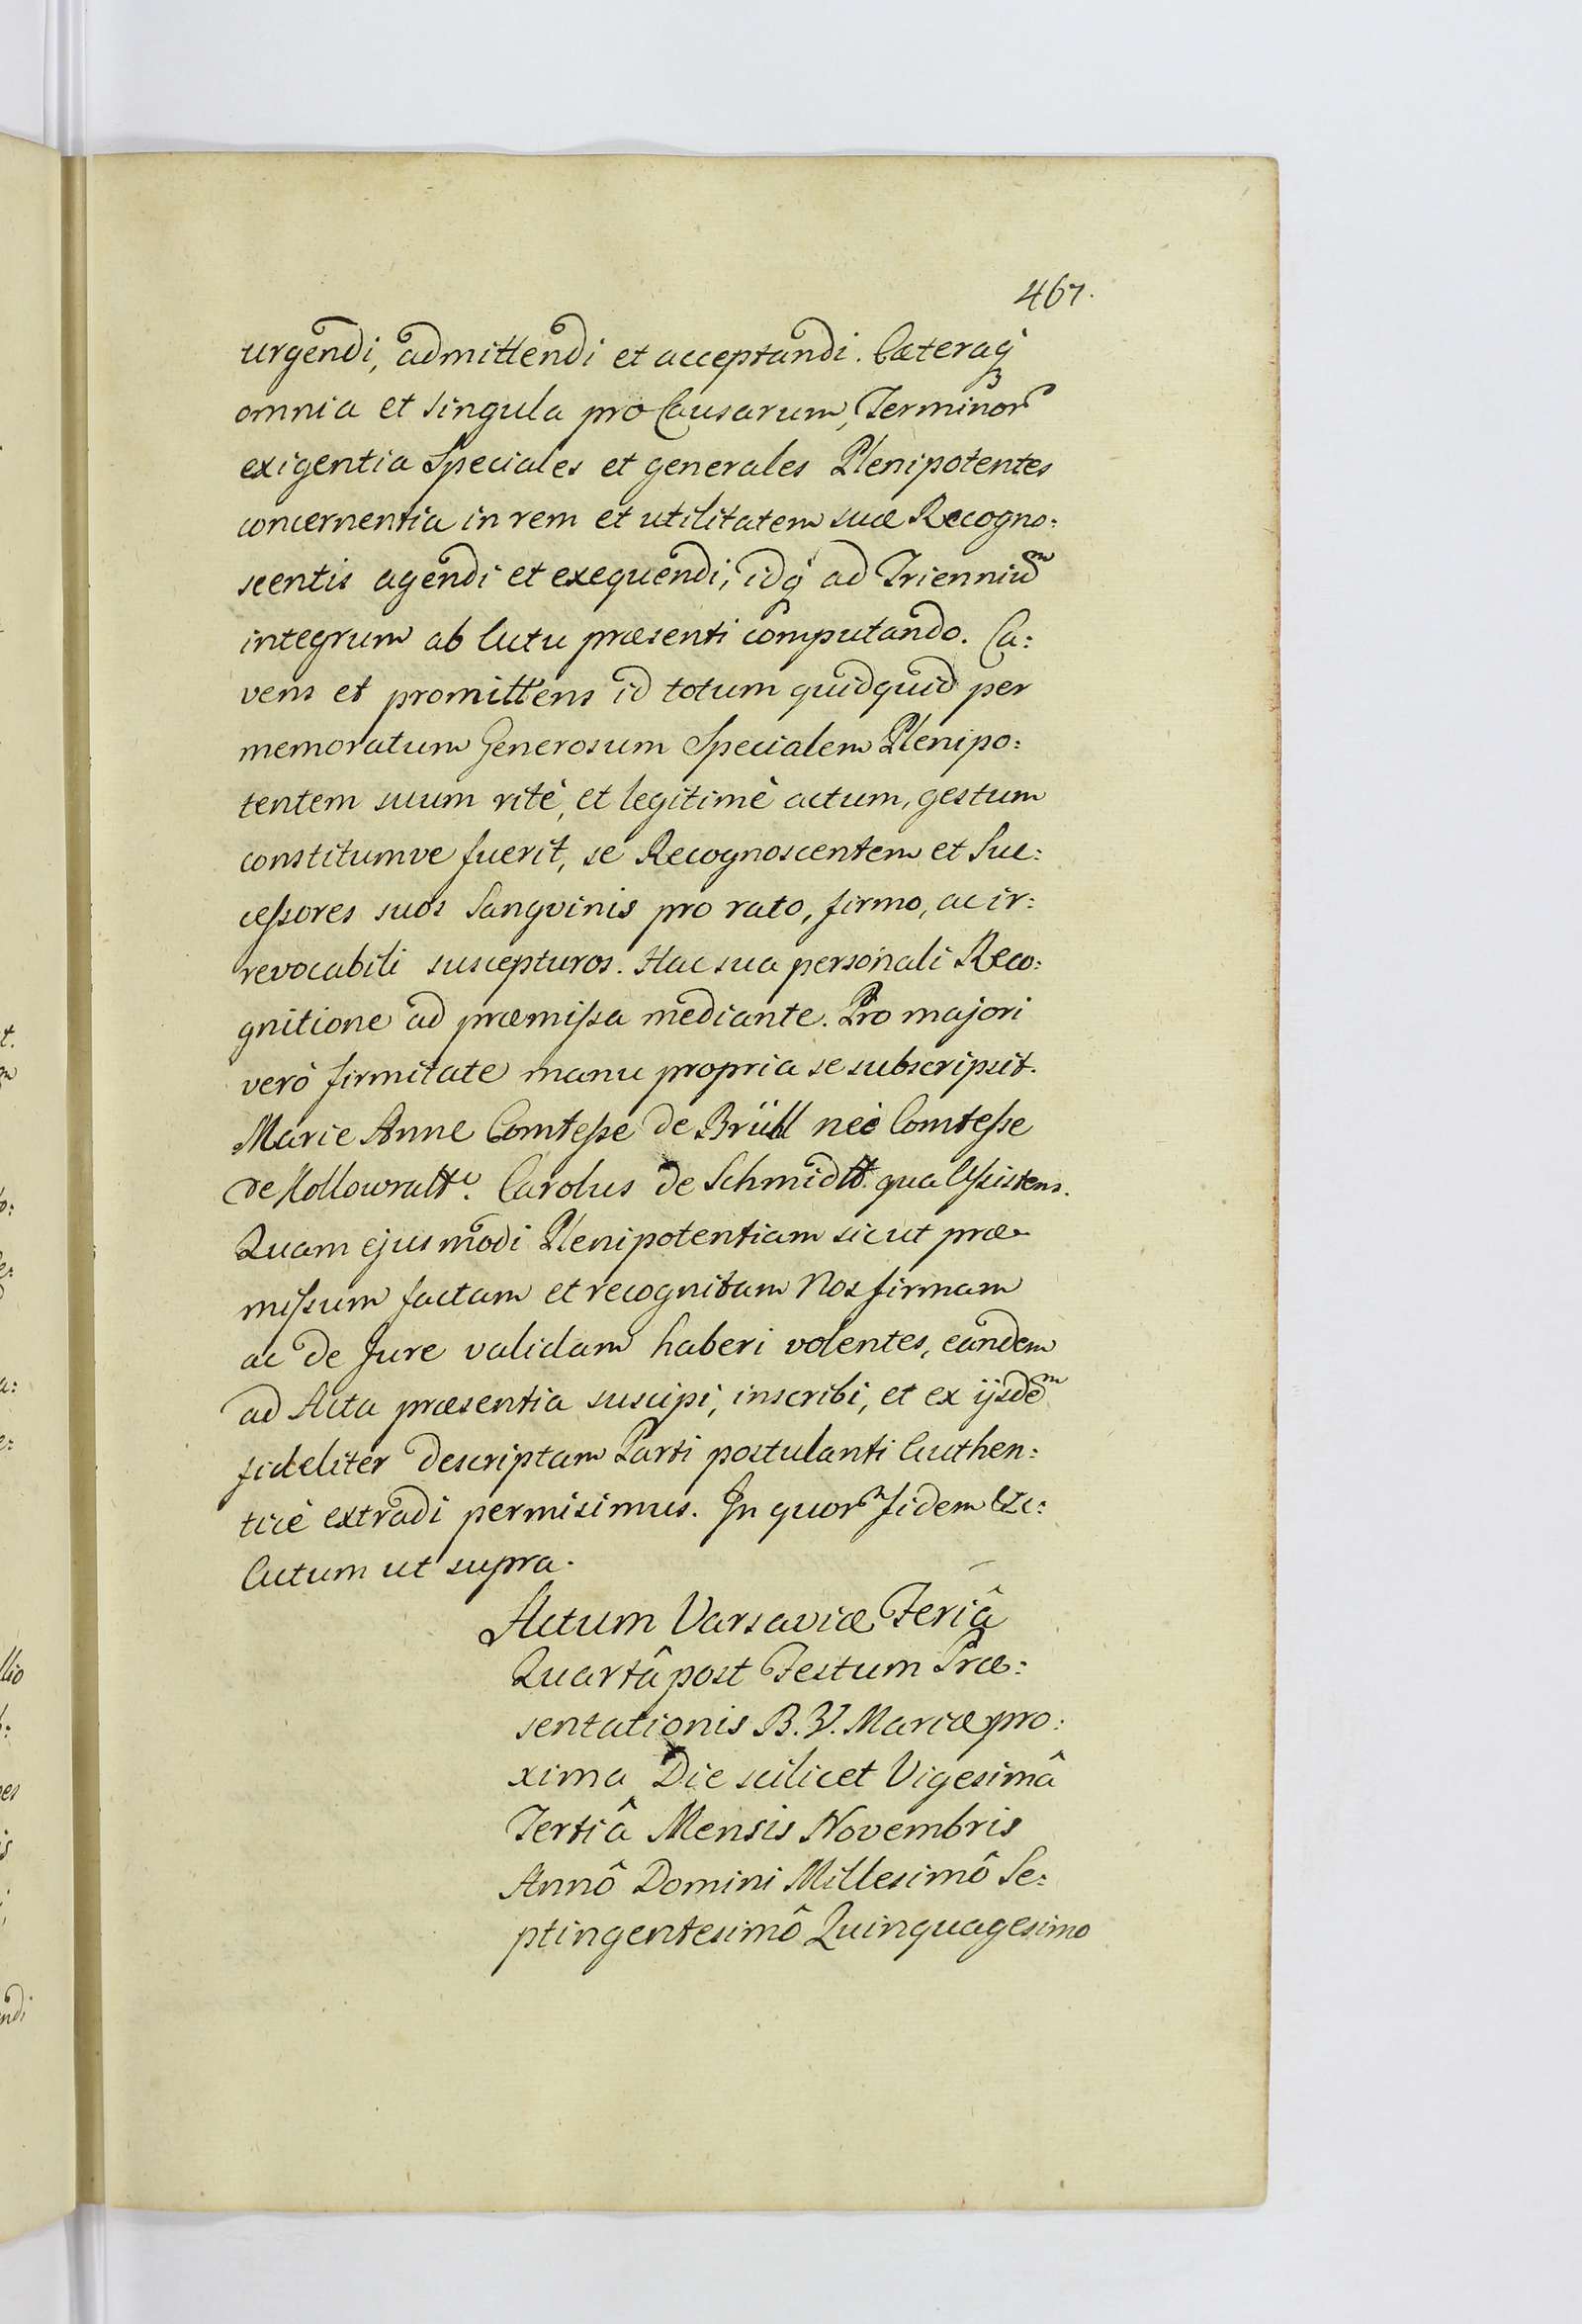 467.
urgendi, admittendi et acceptandi. Cæteraq̃
omnia et singula pro Causarum, Terminor̃
exigentia Speciales et generales Plenipotentes
concernentia in rem et utilitatem suæ Recogno:
scentis agendi et exequendi, idq̃ ad Trienniũm
integrum ab Actu præsenti computando. Ca:
vens et promittens id totum quidquid per
memoratum Generosum Specialem Plenipo:
tentem suum ritè, et legitimè actum, gestum
constitumve fuerit, se Recognoscentem et Suc:
cessores suos Sangvinis pro rato, firmo, ac ir:
revocabili suscepturos. Hac sua personali Reco:
gnitione ad præmissa mediante. Pro majori
verò firmitate manu propria se subscripsit.
Marie Anne Comtesse de Brühl neè Comtesse
de Kollowratt. Carolus de Schmidt qua Assistens.
Quam ejusmodi Plenipotentiam sicut præ
missum factam et recognitam Nos firmam
ac de Jure validam haberi volentes, eandem
ad Acta præsentia suscipi, inscribi, et ex ijsdẽm
fideliter descriptam Parti postulanti Authen:
ticè extradi permisimus. In quor̃ fidem &c:
Actum ut supra.
Actum Varsaviæ Feriâ
Quartâ post Festum Præ:
sentationis B. V. Mariæ pro:
xima Die scilicet Vigesimâ
Tertiâ Mensis Novembris
Annô Domini Millesimô Se:
ptingentesimô Quinquagesimo
t.
llio
ndi